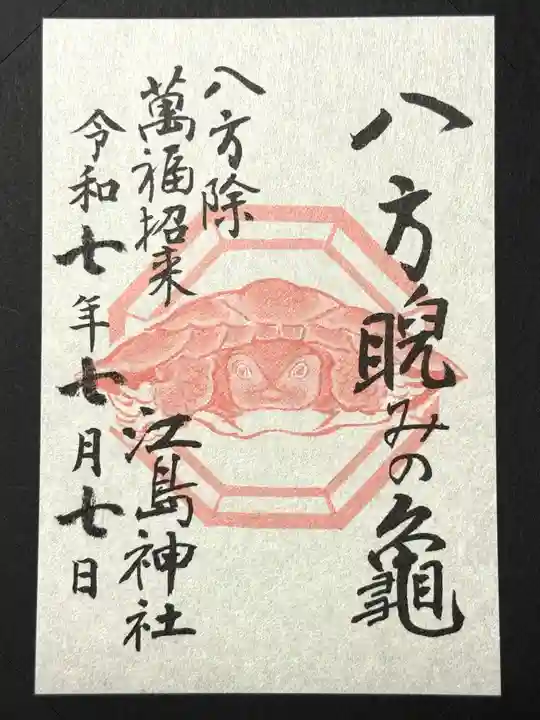 八方睨みの龜
八方除
萬福招来
江島神社
令和七年七月七日